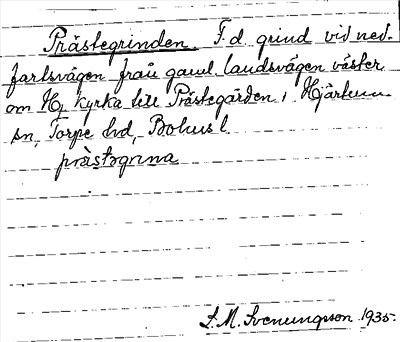 Prästegrinden. F.d. grind vid ned-
fartsvägen från gaml. landsvägen väster
om Hj kyrka till Prästegården, Hjärtum
sn, Torpe hd, Bohusl.
prästəgrina
S. M. Svenungsson 1935.